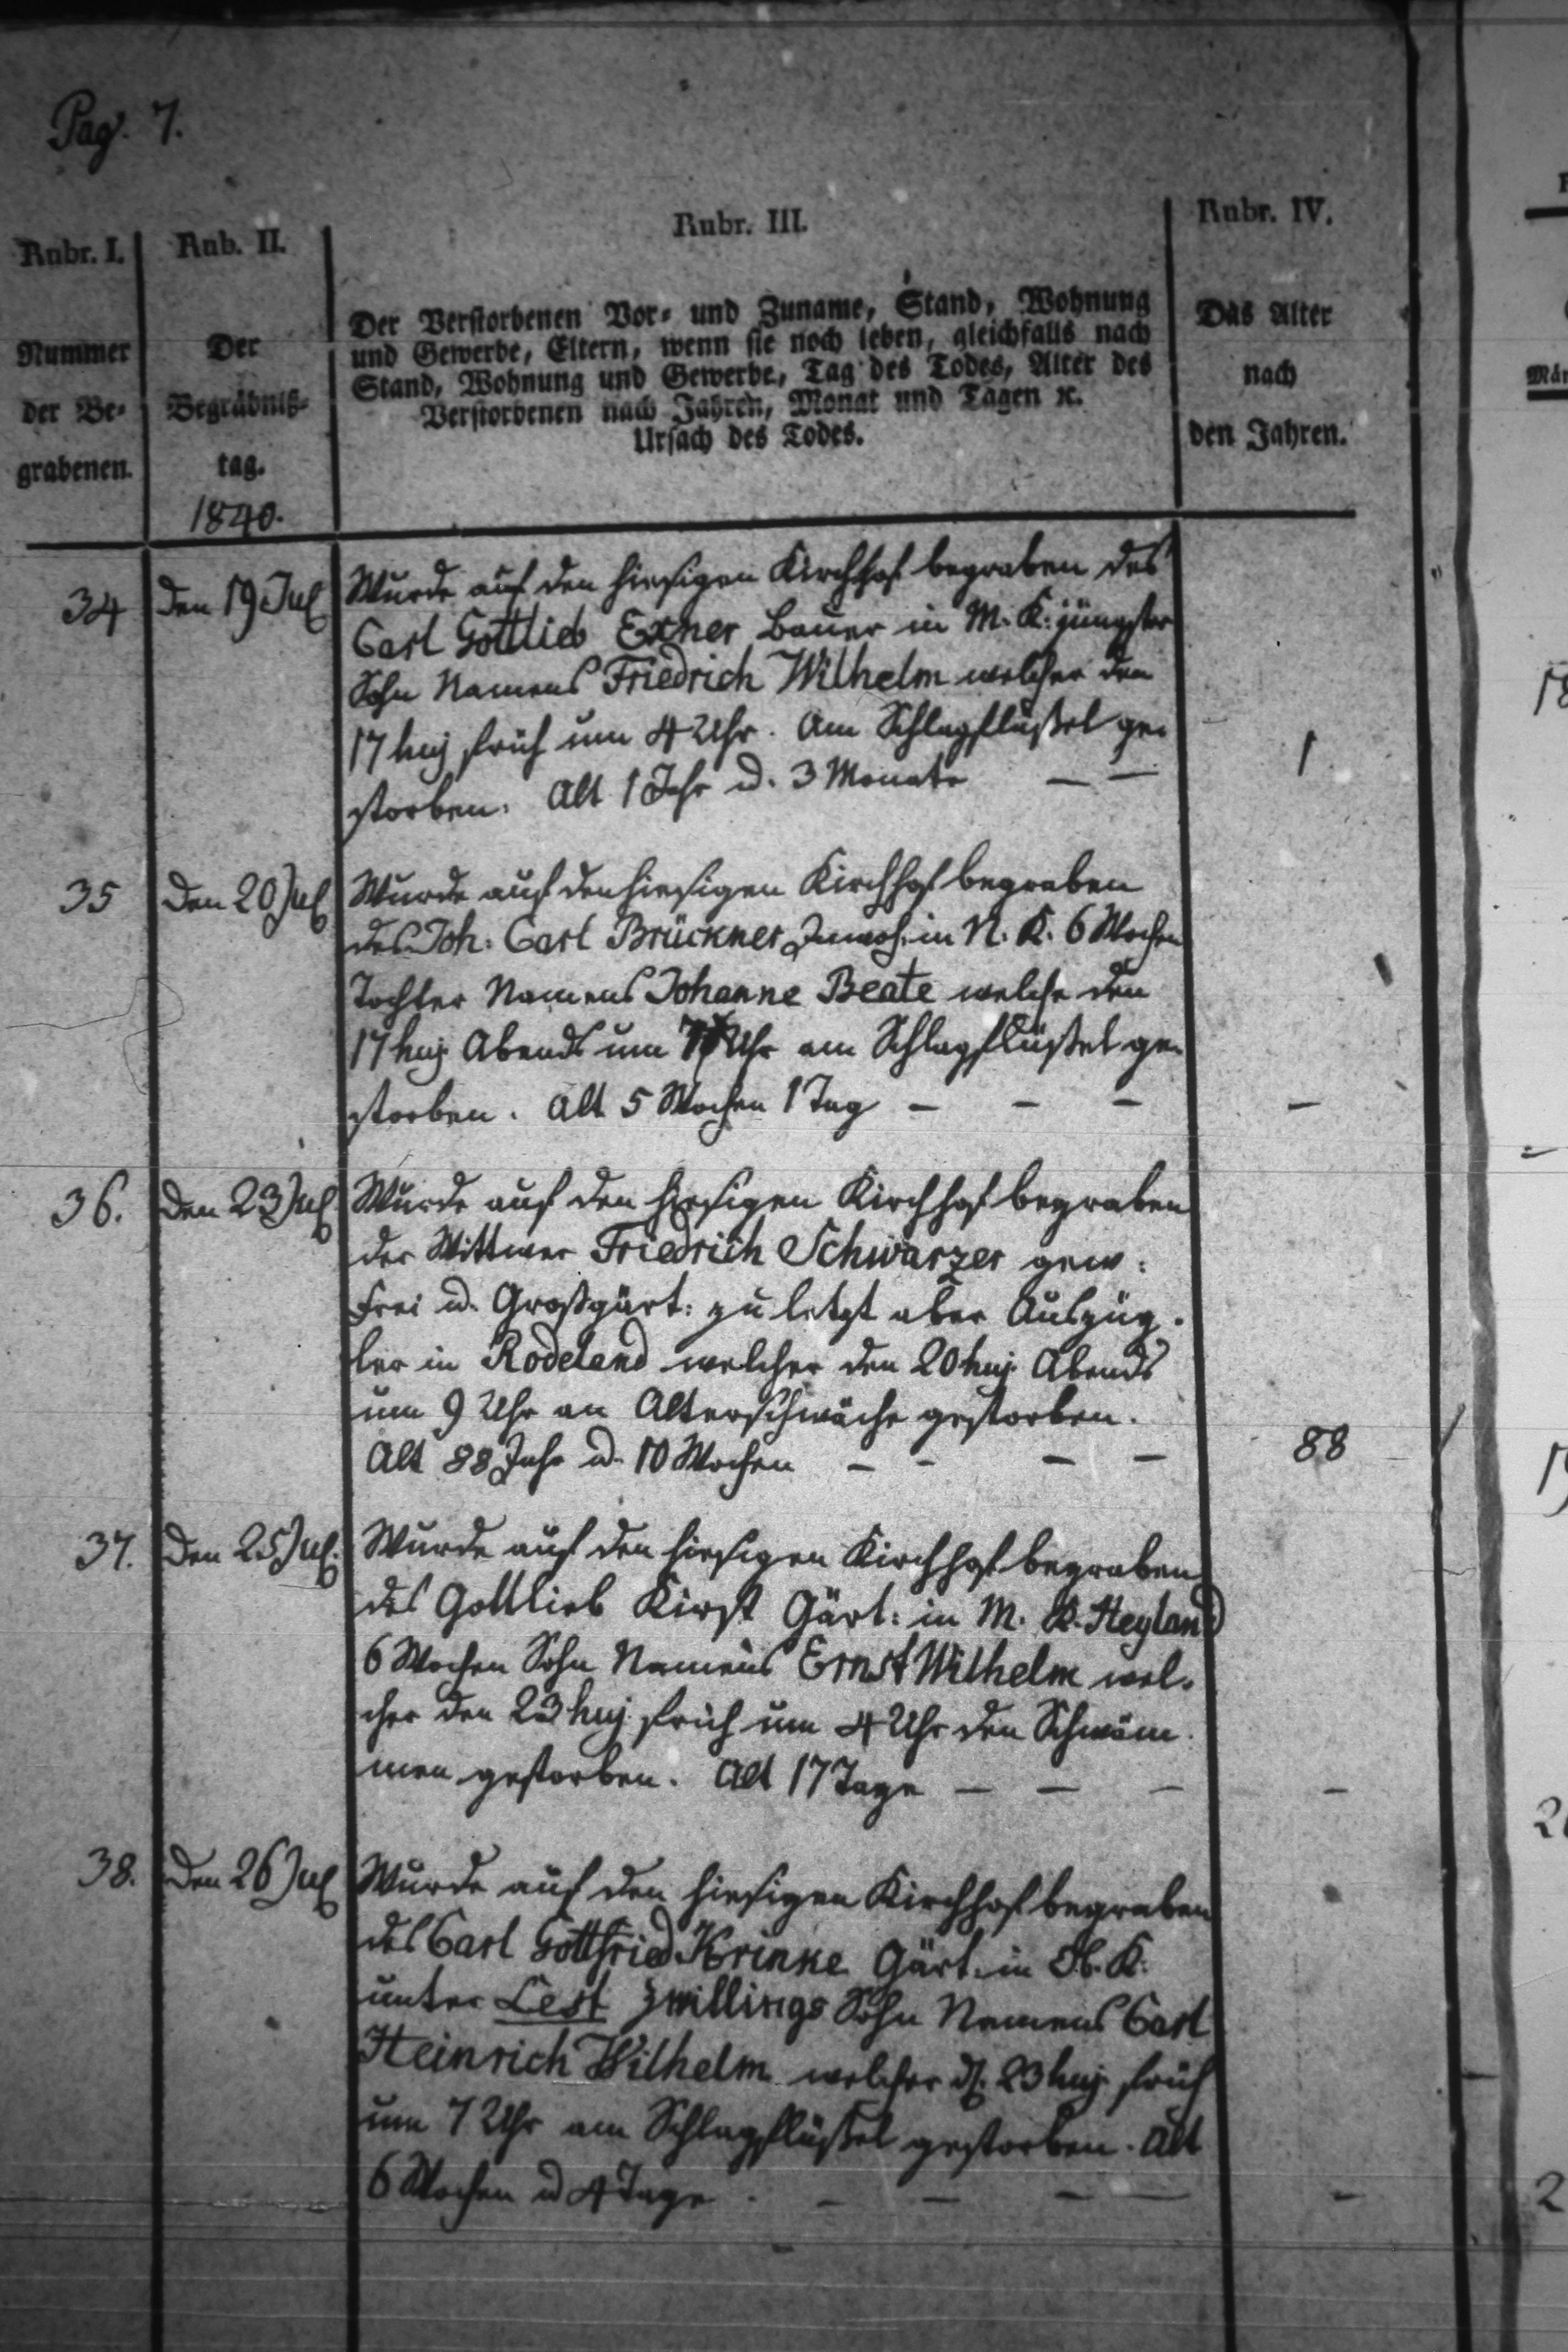 Pag. 7.
Rubr. I.
Rub. II.
Rubr. III.
Rubr. IV.
Nummer
der Be-
grabenen.
Der
Begräbniß-
tag.
1840.
Der Verstorbenen Vor- und Zuname, Stand, Wohnung
und Gewerbe, Eltern, wenn sie noch leben, gleichfalls nach
Stand, Wohnung und Gewerbe, Tag des Todes, Alter des
Verstorbenen nach Jahren, Monat und Tagen ꝛc.
Ursach des Todes.
Das Alter
nach
den Jahren.
34
den 19 Jul
Wurde auf den hiesigen Kirchhof begraben des
Carl Gottlieb Exner Bauer in M. K. jüngster
Sohn Namens Friedrich Wilhelm welcher den
17 huj früh um 4 Uhr. Am Schlagflüßel ge-
storben. Alt 1 Jahr u. 3 Monate — —
1
35
den 20 Jul
Wurde auf den hiesigen Kirchhof begraben
des Joh: Carl Brückner Inwoh: in N. K. 6 Wochen
Tochter Namens Johanne Beate welche den
17 huj Abends um 7 Uhr am Schlagflüßel ge-
storben. Alt 5 Wochen 1 Tag — — —
—
36.
den 23 Jul
Wurde auf den hiesigen Kirchhof begraben
der Wittwer Friedrich Schwarzer gew:
Frei u. Großgärt: zu letzt aber Auszüg-
ler in Rodeland welcher den 20 huj. Abends
um 9 Uhr an Alterschwäche gestorben.
Alt 88 Jahr u. 10 Wochen — — — —
88
37.
den 25 Jul.
Wurde auf den hiesigen Kirchhof begraben
des Gottlieb Kirst Gärt: in M. K. Heyland
6 Wochen Sohn Namens Ernst Wilhelm wel-
cher den 23 huj. früh um 4 Uhr den Schwäm-
men gestorben. Alt 17 Tage — — —
—
38.
den 26 Jul
Wurde auf den hiesigen Kirchhof begraben
des Carl Gottfried Krinke Gärt. in K.
unter Lest zwillings Sohn Namens Carl
Heinrich Wilhelm welcher d. 23 huj. früh
um 7 Uhr am Schlagflüßel gestorben. Alt
6 Wochen u 4 Tage — — — —
—